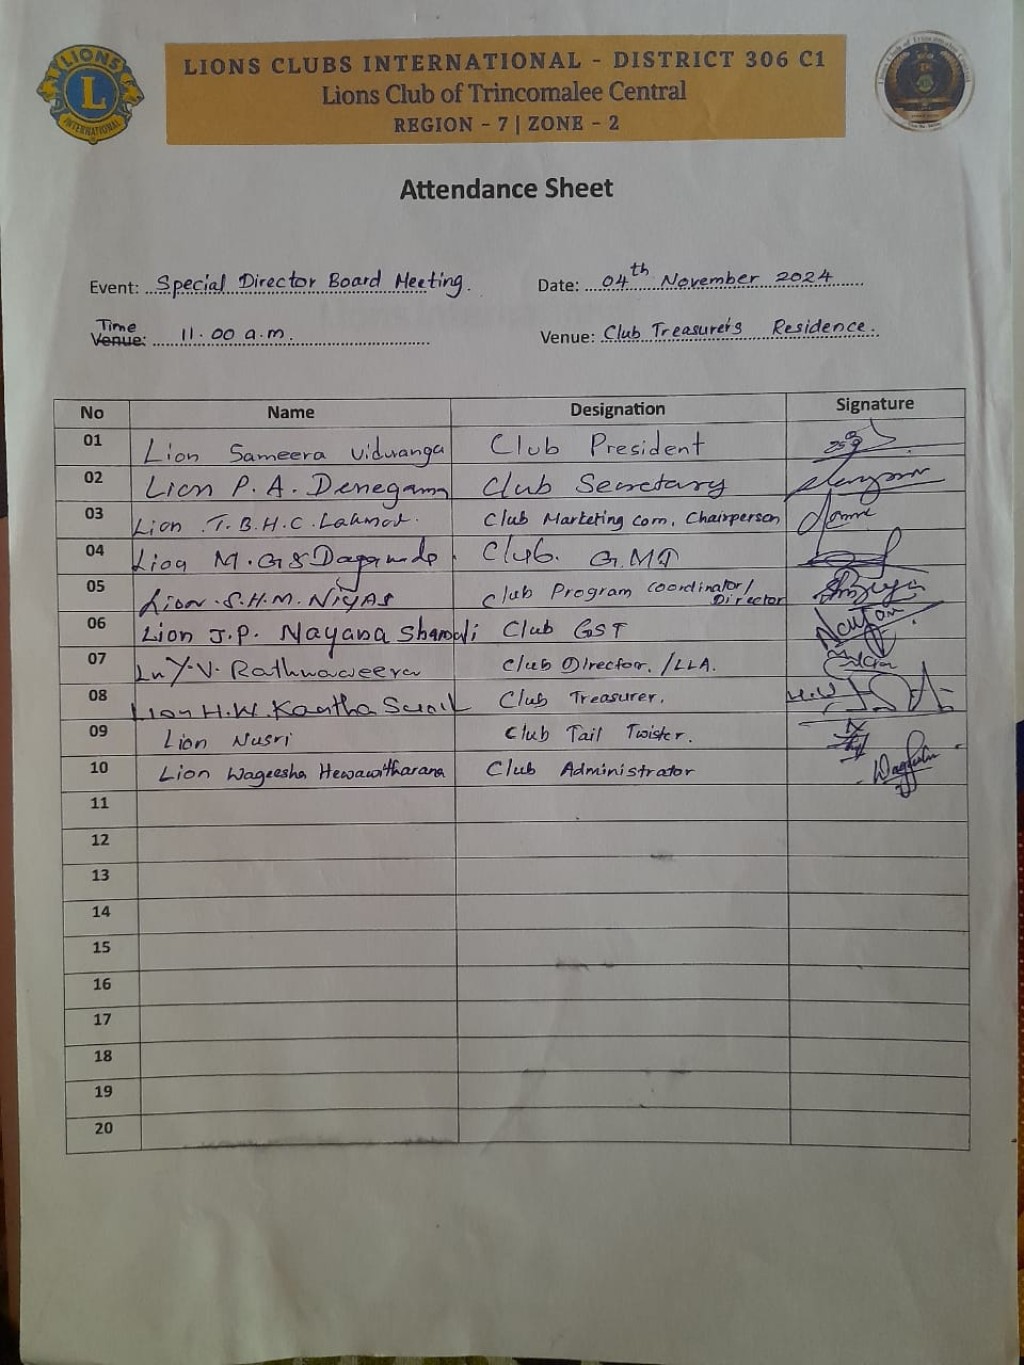 LIONS CLUBS INTERNATIONAL - DISTRICT 306 C1
Lions Club of Trincomalee Central
REGION - 7 | ZONE - 2
LIONS
L
INTERNATIONAL
Attendance Sheet
Event: Special Director Board Meeting. Date: 04th November 2024
Time
Venue: 11.00 a.m. Venue: Club Treasurer's Residence.
No Name Designation Signature
01 Lion Sameera Viduranga Club President
02 Lion P. A. Denegama Club Secretary
03 Lion T.B.H.C. Club Marketing com. Chairperson
04 Lion M.G.S Club. GMT
05 Lion.S.H.M. NIYAS Club Program Coordinator/ Director
06 Lion J.P. Nayana Club GST
07 Ln Y.V. Rathnaweera Club Director. /LLA.
08 Lion H.W. Kantha Club Treasurer.
09 Lion Nusri Club Tail Twister.
10 Lion Wageesha Hewawitharana Club Administrator
11
12
13
14
15
16
17
18
19
20